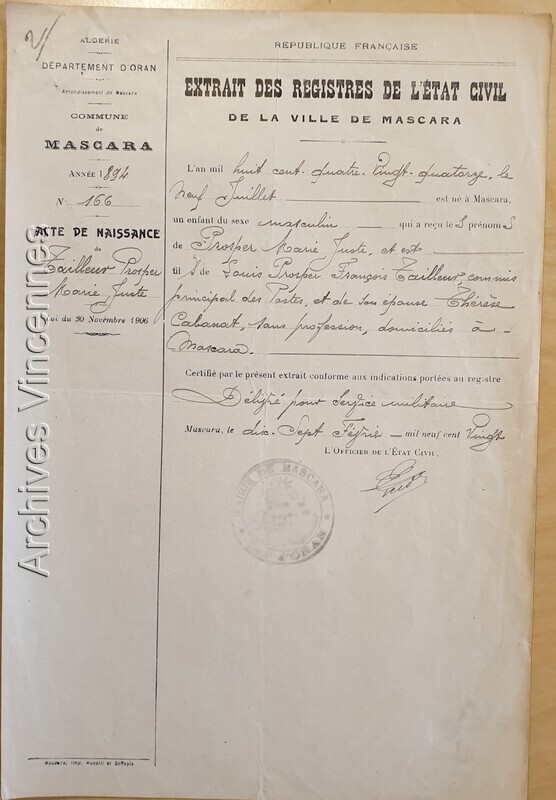 2/
ALGÉRIE
DÉPARTEMENT D'ORAN
Arrondissement de Mascara
COMMUNE
de
MASCARA
ANNÉE 1894
N° 166
ACTE DE NAISSANCE
de
Tailleur Prosper
Marie Juste
Loi du 30 Novembre 1906
REPUBLIQUE FRANÇAISE
EXTRAIT DES REGISTRES DE L'ÉTAT CIVIL
DE LA VILLE DE MASCARA
L'an mil huit cent quatre-Vingt-quatorze, le
neuf Juillet est né à Mascara,
un enfant du sexe masculin qui a reçu le S prénom S
de Prosper Marie Juste, et est
fil S de Louis Prosper François Tailleur, commis
principal des Postes, et de son épouse Thérèse
Cabanat, sans profession, domiciliés à
Mascara.
Certifié par le présent extrait conforme aux indications portées au registre
Délivré pour service militaire
Mascara, le dix-Sept Février mil neuf cent Vingt
L'OFFICIER DE L'ÉTAT CIVIL,
MAIRIE DE MASCARA
D'ORAN
Mascara, Imp. Muselli et
Archives Vincennes